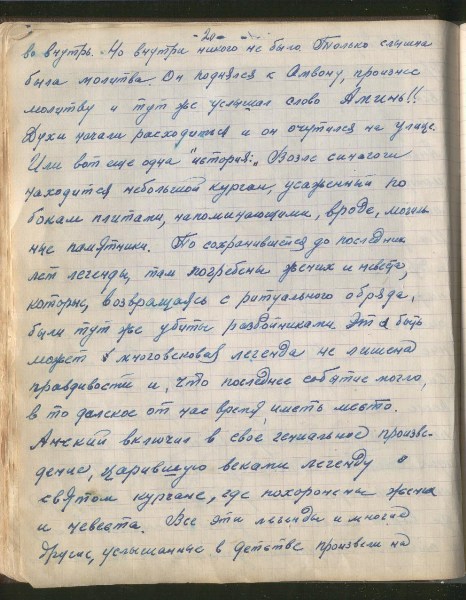 -20-
во внутрь. Но внутри никого не было. Только слышна
была молитва. Он поднялся к Амвону, произнес
молитву и тут же услышал слово Аминь!!
Духи начали расходиться и он очутился на улице.
Или вот еще одна "история": Возле синагоги
находится небольшой курган, усаженный по
бокам плитами, напоминающими, вроде, могиль
ные памятники. По сохранившейся до последних
лет легенды, там погребены жених и невеста,
которые, возвращаясь с ритуального обряда,
были тут же убиты разбойниками. Эта быть
может и многовековая легенда не лишена
правдивости и, что последнее событие могло,
в то далекое от нас время, иметь место.
Анский включил в свое гениальное произве-
дение, царившую веками легенду о
святом кургане, где похоронены жених
и невеста. Все эти легенды и многие
другие, услышанные в детстве произвели на